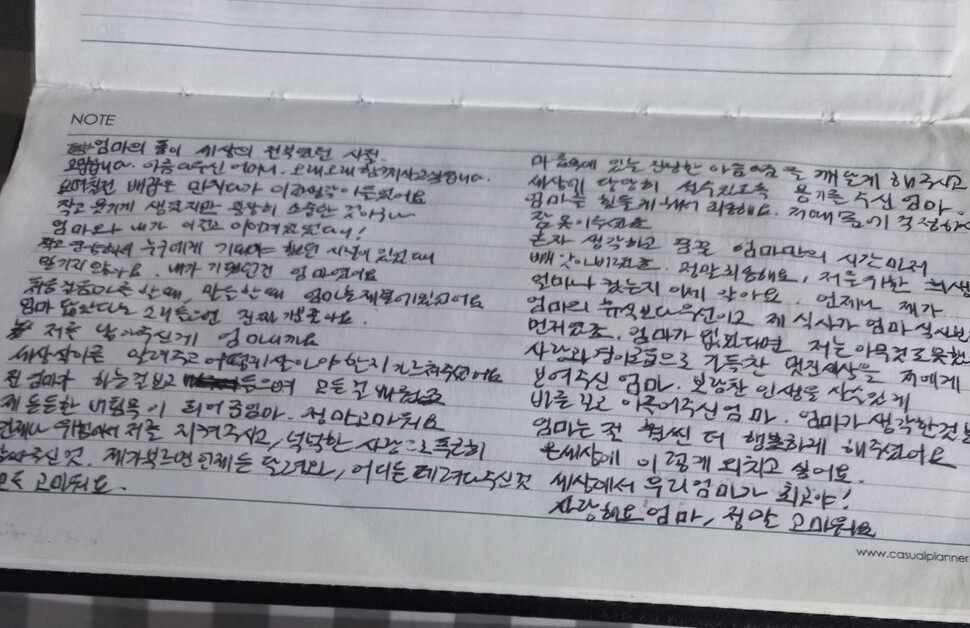 NOTE
엄마의 품이 세상의 전부였던 시절
고맙습니다. 아름다우신 어머니. 오래오래 함께 살고 싶습니다.
배감은 만지다가 이 아들었어요
작고 웃기게 생겼지만 굉장히 소중한 것
엄마와 내가 이어져 있었다니!
누구에게 기대야 했던 시절이 있었다니
믿기지 않아요. 내가 기댄 건 엄마였어요
처음 걸음마를 할 때, 말을 할 때 엄마는 제 곁에 있었어요
엄마 닮았다는 소리 들으면 진짜 기분 좋아요.
저를 낳아주신 게 엄마니까요
세상살이를 알려주고 어떻게 살아야 한지 가르쳐주셨어요
전 엄마가 하는 걸 보고 들으며 모든 걸 배웠고요
제 든든한 버팀목이 되어준 엄마. 정말 고마워요
언제나 위험에서 저를 지켜주시고, 넉넉한 사랑으로 포근히
안아주신 것. 제가 부르면 언제든 달려와, 어디든 데려다주신 것
모두 고마워요.
마음속에 있는 진정한 아름다움을 깨닫게 해주시고
세상에 당당히 설 수 있도록 용기를 주신 엄마.
엄마를 힘들게 해서 죄송해요. 저 때문에 걱정하
잠 못 이루셨죠
혼자 생각하고 꿈꿀 엄마만의 시간마저
빼앗아버렸죠. 정말 죄송해요, 저를 위한 희생
얼마나 컸는지 이제 알아요. 언제나 제가
엄마의 휴식보다 우선이고 제 식사가 엄마 식사보
먼저였죠. 엄마가 없었다면 저는 아무것도 못했
사랑과 경이로움으로 가득찬 멋진 세상을 저에게
보여주신 엄마. 보람찬 인생을 살 수 있게
바른 길로 이끌어주신 엄마. 엄마가 생각한 것보
엄마는 전 훨씬 더 행복하게 해주셨어요
온세상에 이렇게 외치고 싶어요.
세상에서 우리엄마가 최고야!
사랑해요 엄마, 정말 고마워요
www.casualplanner